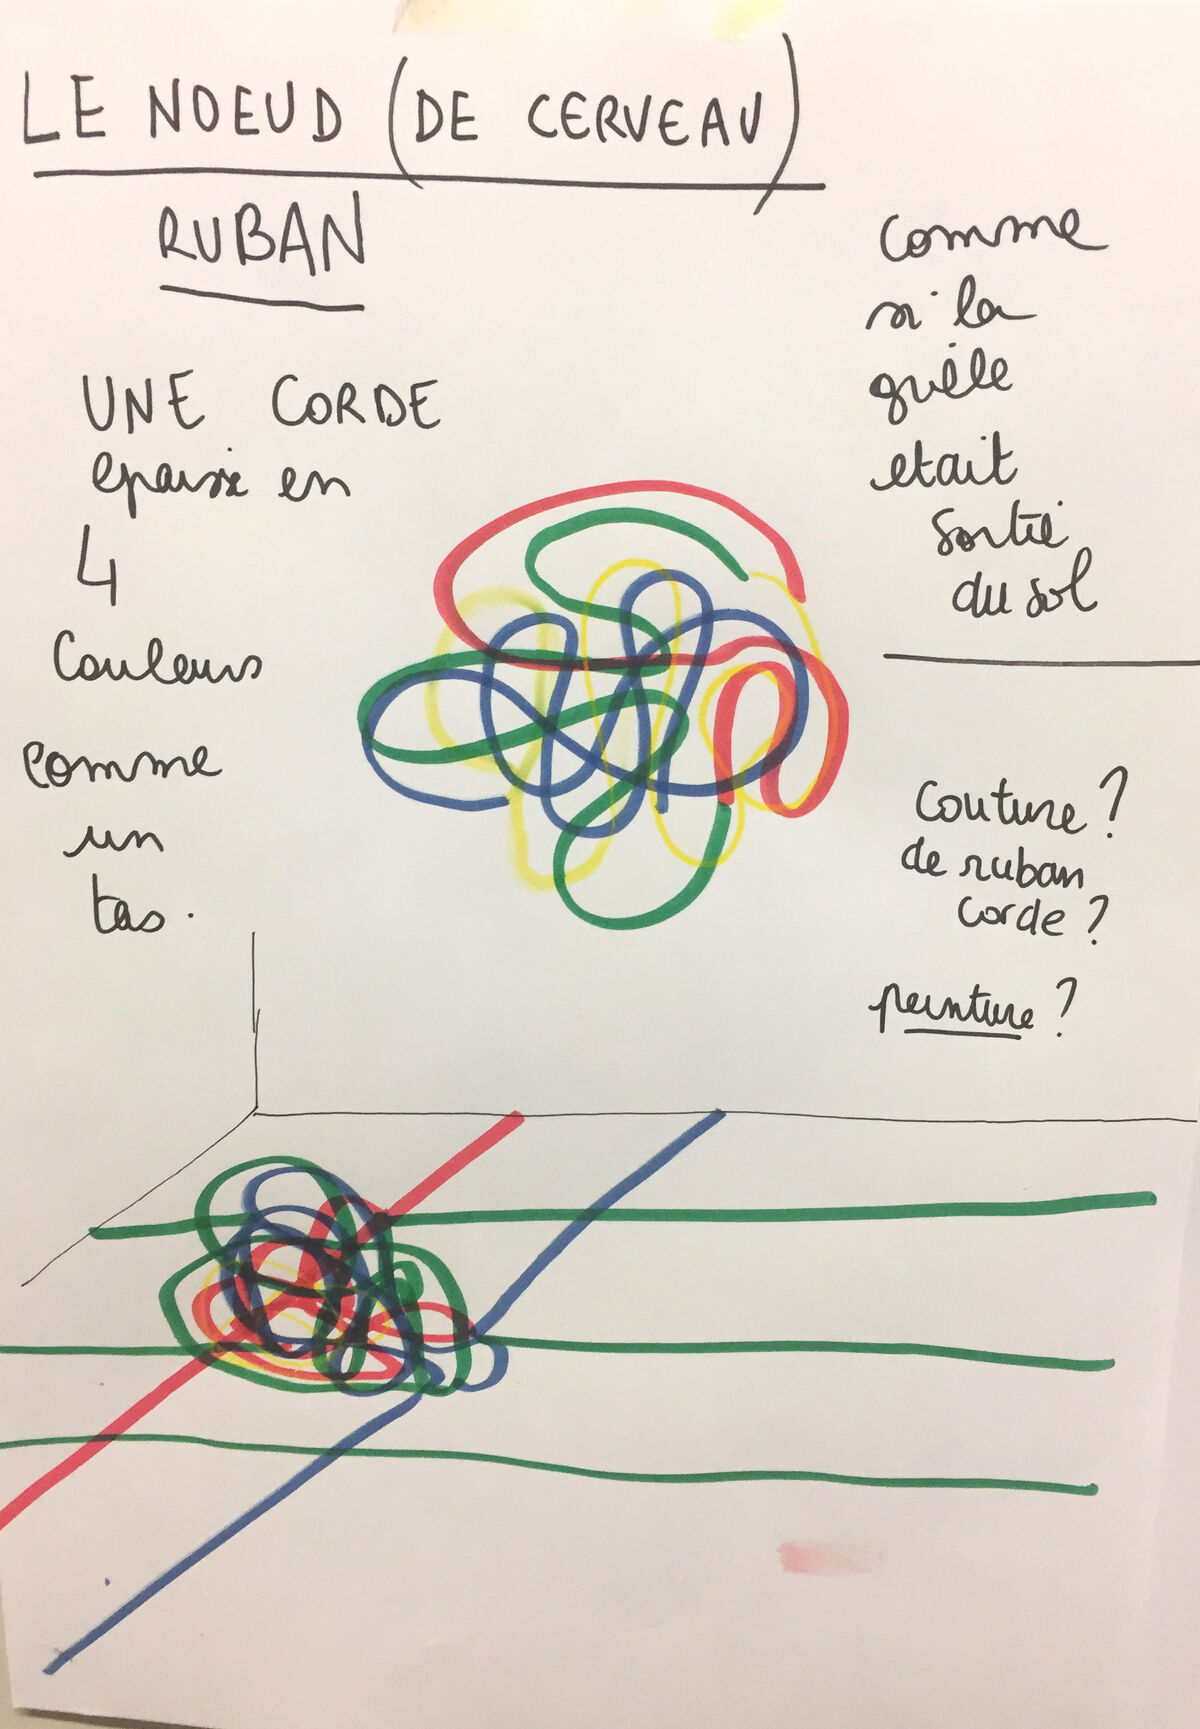 LE NOEUD (DE CERVEAU)
RUBAN
UNE CORDE
epaisse en
4
Couleurs
comme
un
tas.
Comme
si la
était
sortie
du sol
couture ?
de ruban
corde ?
peinture ?